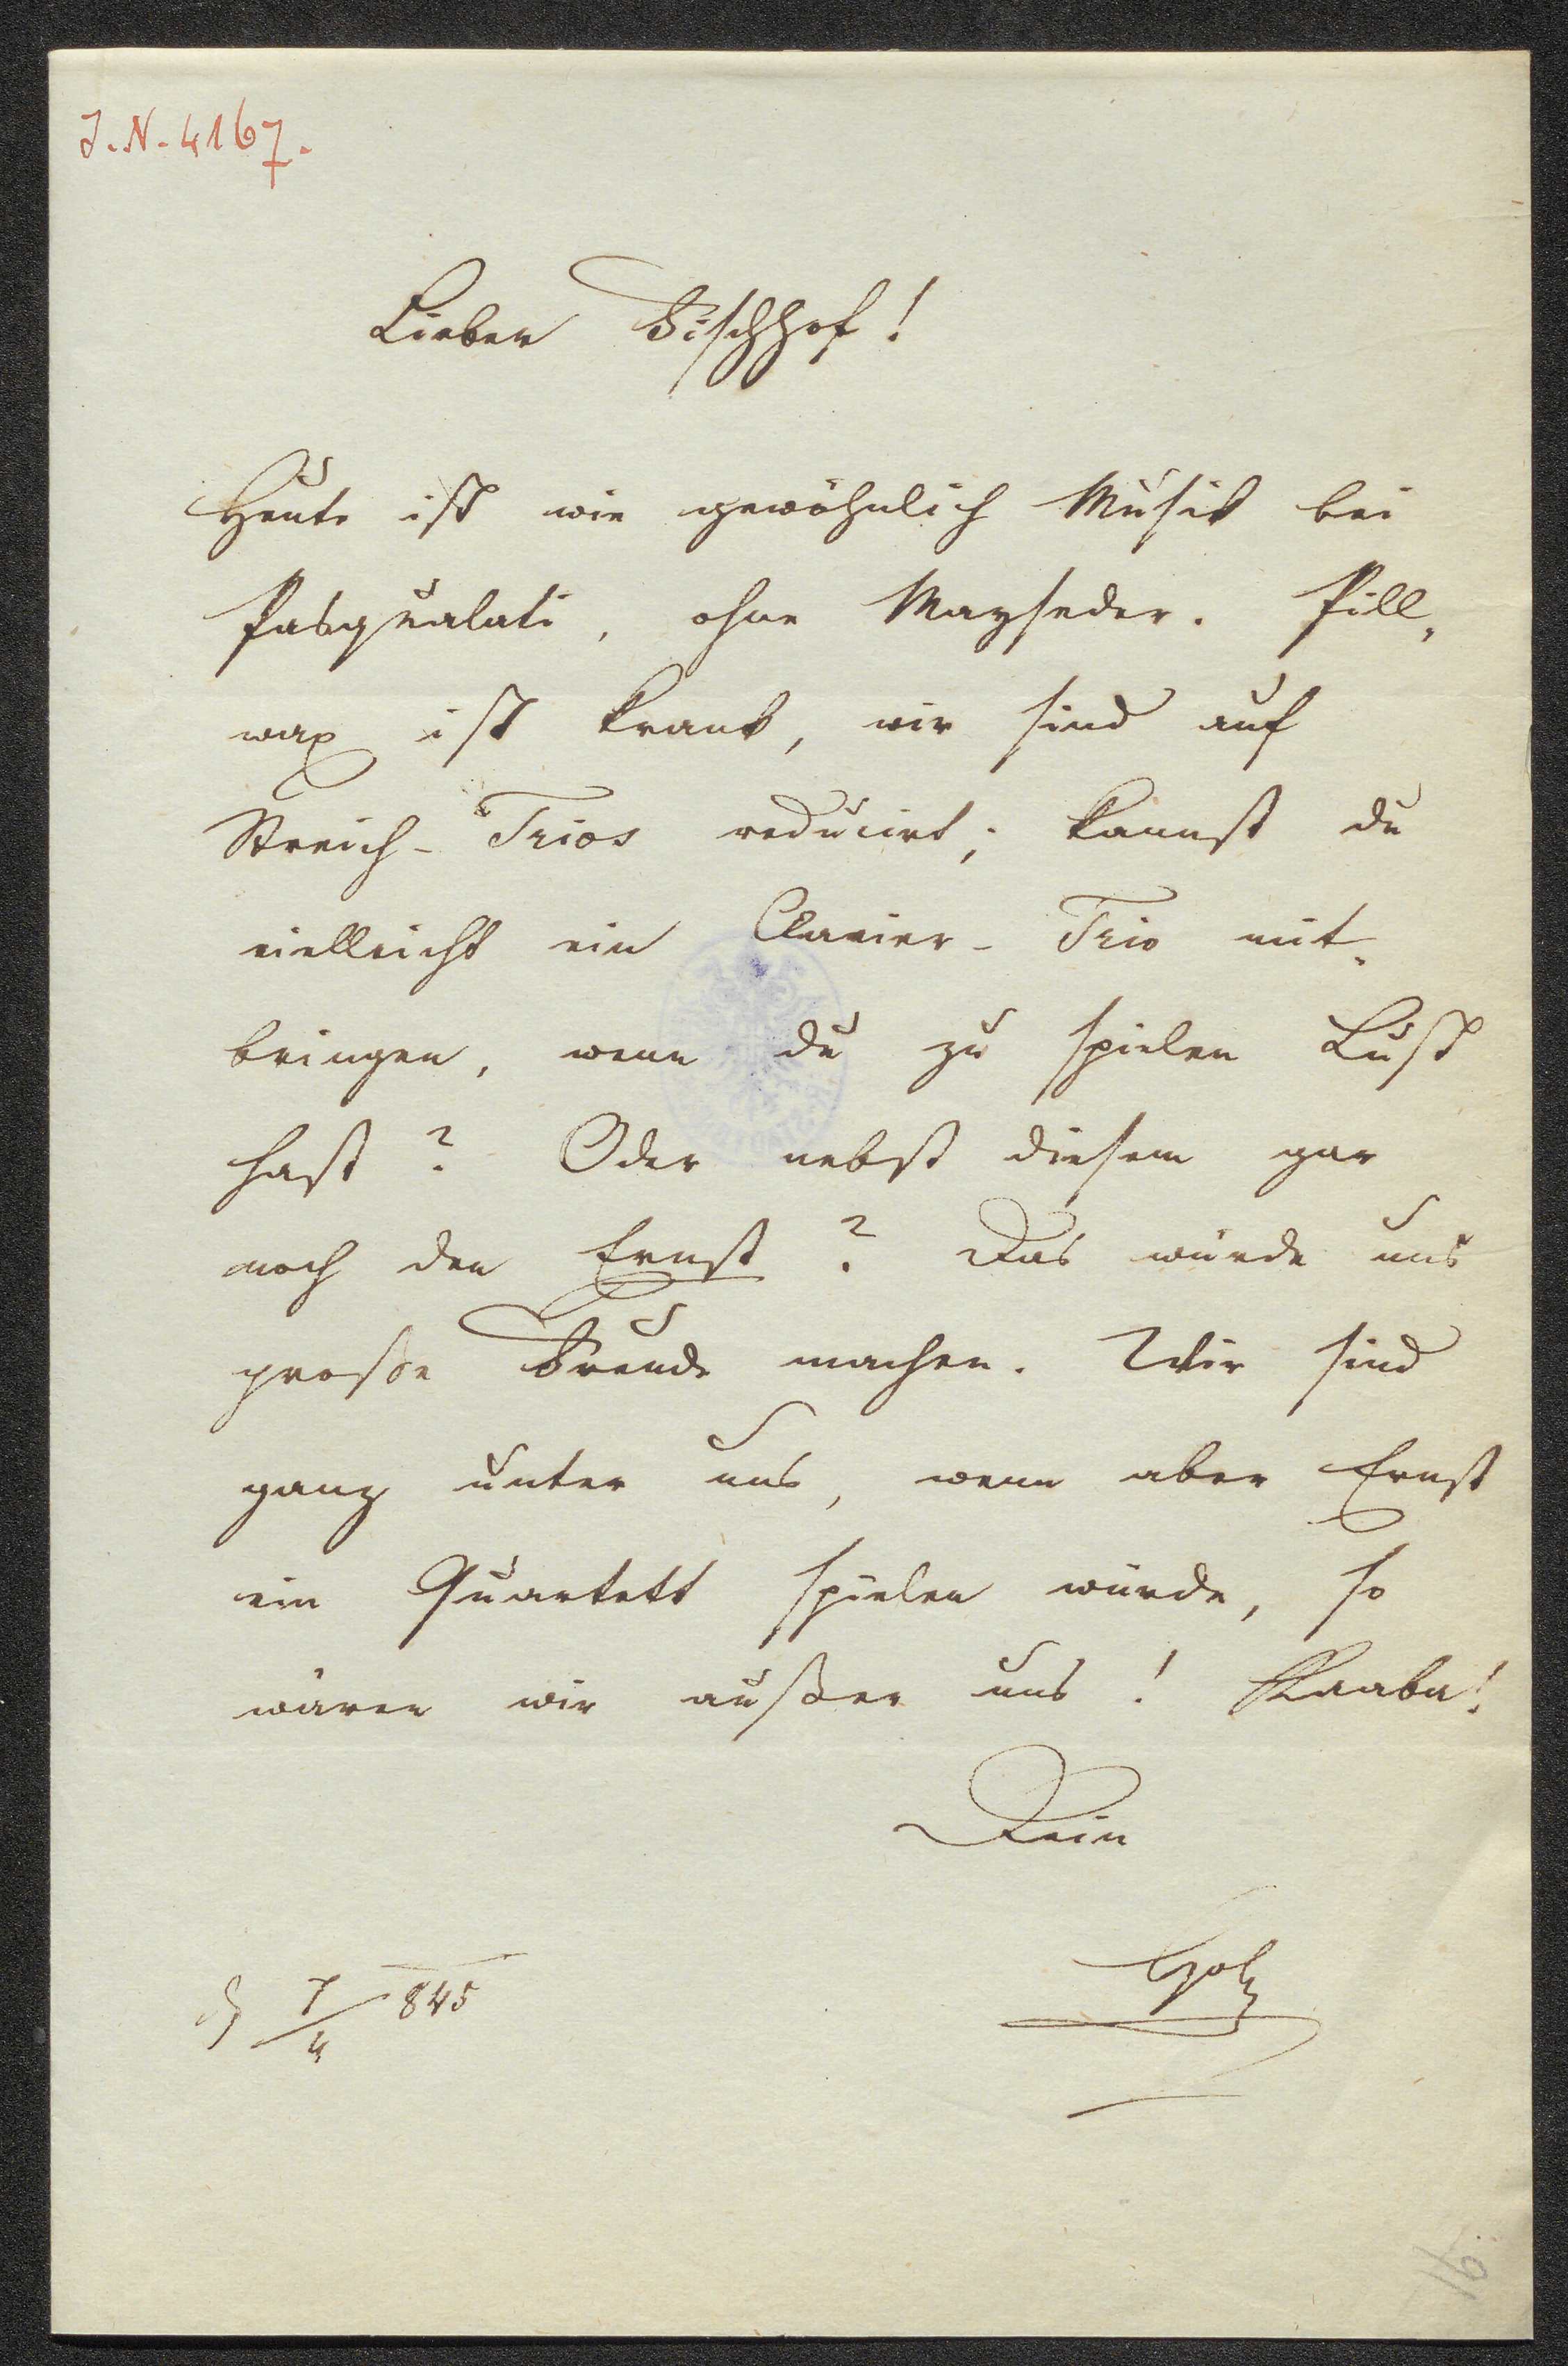 J.N. 4167.
Lieber Fischhof!
Heute ist wie gewöhnlich Musik bei
Pasqualati, ohne Mayseder. Pill„
wax ist krank, wir sind auf
Streich-Trios reducirt; kannst du
vielleicht ein Clavier-Trio mit„
bringen, wenn du zu spielen Lust
hast? Oder nebst diesem gar
noch den Ernst? Das würde uns
große Freude machen. Wir sind
ganz unter uns, wenn aber Ernst
ein Quartett spielen würde, so
wären wir außer uns!
Dein
Holz
7/4 845
16.